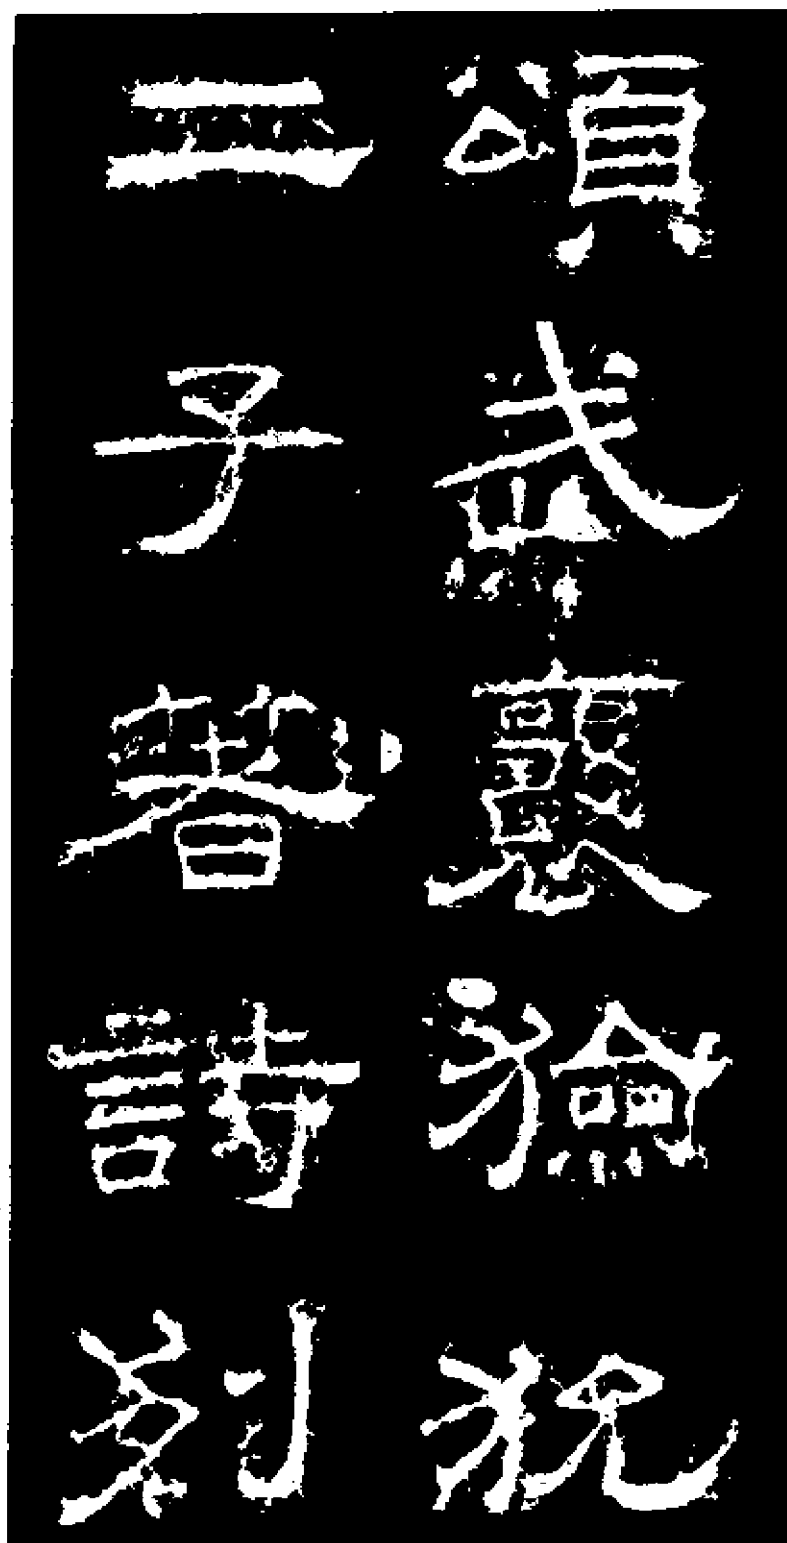 頌武襄獫狁
二子著詩列